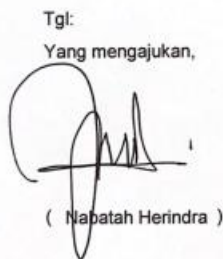 Tgl:
Yang mengajukan,
( Nabatah Herindra )